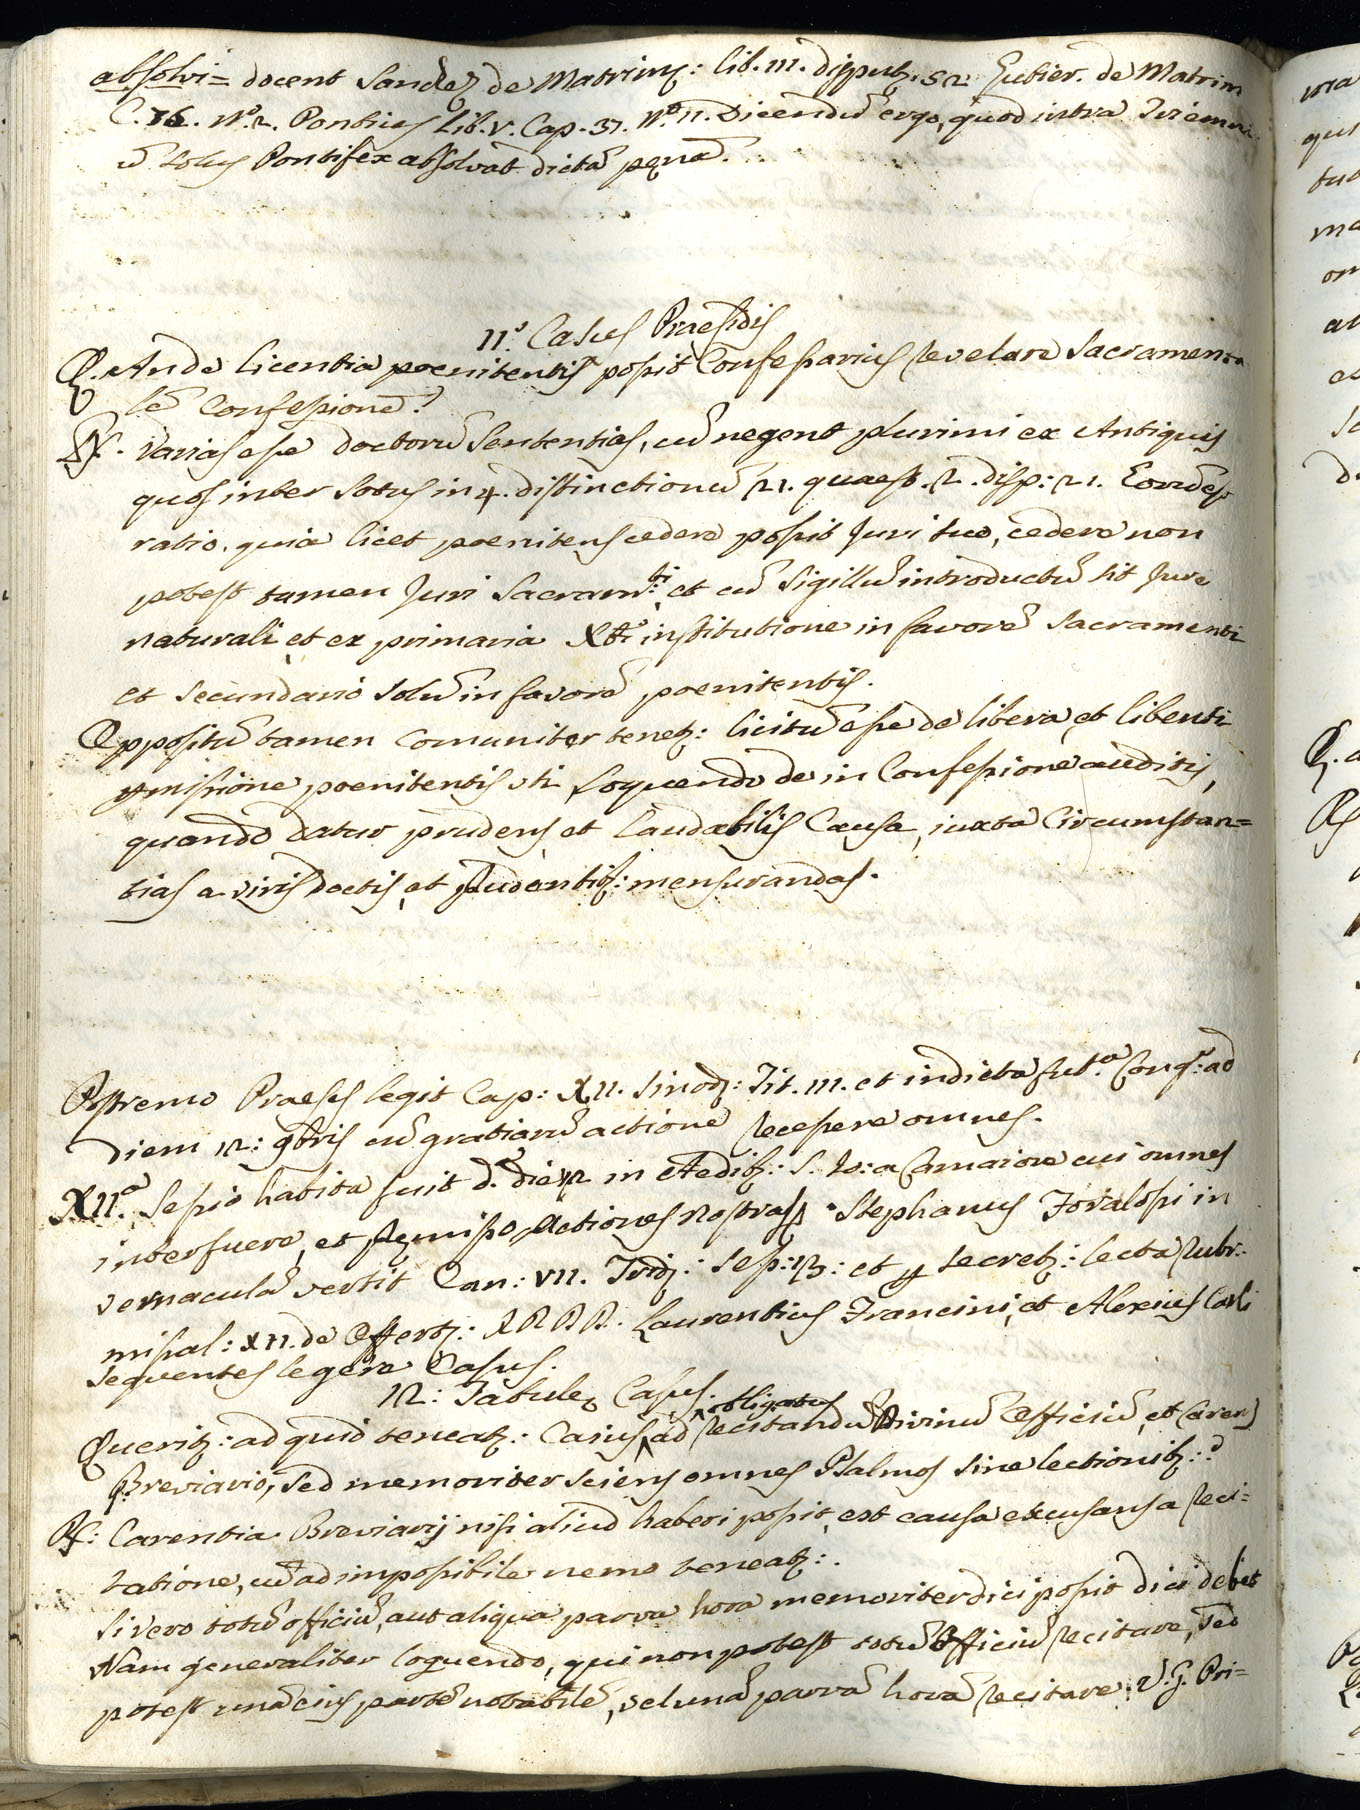 absolvi= docent Sanchez de Matrim: lib. III. disput. 52 Gutier. de Matrim
C. 36. N.º 2. Pontius Lib. V. Cap. 37. N.º 11. Dicendũ ergo, quod intra Triennĩ
ũ solus Pontifex absolvat dictã penã.
11.º Casus Praesidis
Q. An de licentia poenitentis possit Confessarius revelare Sacramenta
lẽ Confessionẽ?
R. Varias esse doctorũ Sententias, cũ negent plurimi ex Antiquis
quos inter Sotus in 4. distinctionũ 21. quaest. 2. disp: 21. Eorũ est
ratio, quia licet poenitens cedere possit Juri suo, cedere non
potest tamen Juri Sacram:ti et cũ Sigillũ introductũ sit Jure
naturali et ex primaria Xti institutione in favorẽ Sacramenti
et secundario solũ in favorẽ poenitentis.
Oppositũ tamen comuniter tenet: licitũ esse de libera, et libenti
pmissione poenitentis uti loquendo de in Confessione auditis,
quando datur prudens, et laudabilis Causa, iuxta Circumstan=
tias a viris doctis, et prudentib: mensurandas.
Postremo Praeses legit Cap: XII. Sinod: Tit. III. et indicta fut.a Cong: ad
Diem 12: 9bris cũ gratiarũ actione recepere omnes.
XII.a Sessio habita fuit d.º die 12 in Aedib: S. M: a Camaiore cui omnes
interfuere, et praemisso Actiones nostras Stephanus Toralossi in
vernaculã vertit Can: VII. Trid: Sess: 13: et p Secret: lecta Rubr:
missal: XII. de Offert: RRRR. Laurentius Francini, et Alexius Carli
sequentes legere Casus.
12: Tabulę Casus.
Querit: ad quid teneat: Caius obligatus ad recitandũ Divinũ Officiũ, et Caren)
Breviario, sed memoriter sciens omnes Psalmos sine lectionib:?
R: Carentia Breviarij nisi aliud haberi possit est causa excusans a reci=
tatione, cũ ad impossibile nemo teneat:.
Si vero totũ officiũ, aut aliqua parva hora memoriter dici possit dici debet
Nam generaliter loquendo, qui non potest totũ Officiũ recitare, sed
potest unã eius partẽ notabilẽ, vel unã parvã horã recitare, V.G. Pri=